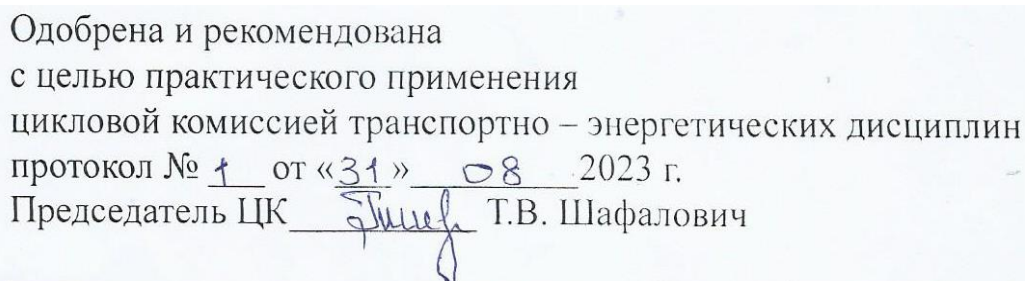 Одобрена и рекомендована
с целью практического применения
цикловой комиссией транспортно – энергетических дисциплин
протокол № 1 от «31» 08 2023 г.
Председатель ЦК Т.В. Шафалович